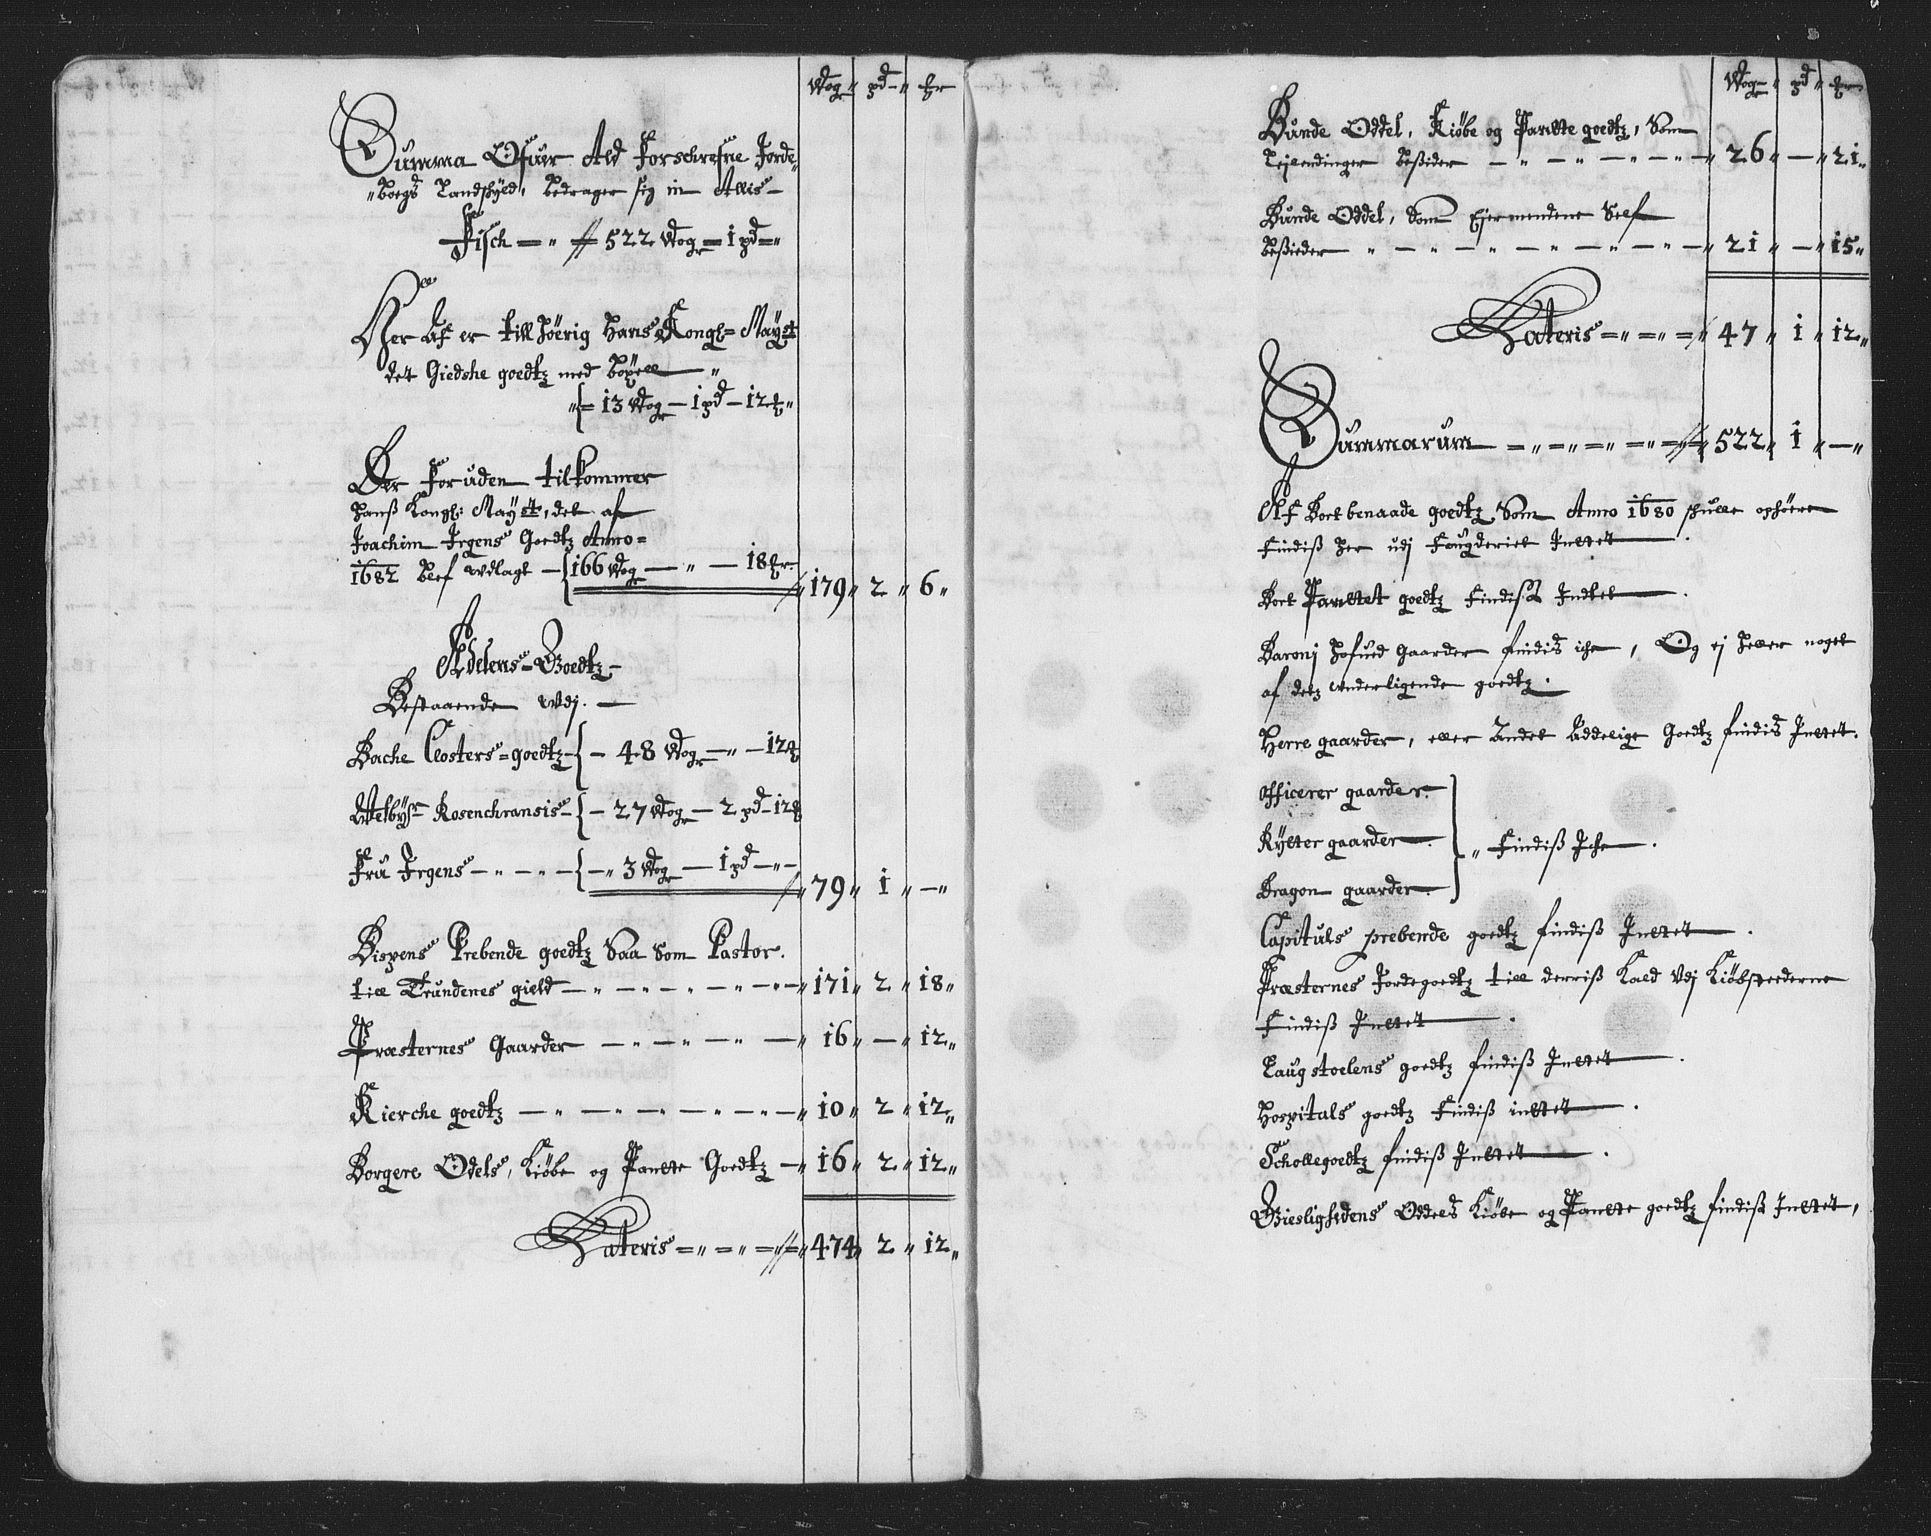 Wog „ pd „ ℔r
Summa Ofuer Ald Forschrefne Jorde„
„Boegs Landschyld, bedrager sig in Allis
Fisch — „ 522 Wog — 1 pd — „
Her Af er till høerig Hans Kongl: Mayst
det Giedshe goedtz med böxell — „
„ 13 Wog — 1 pd — 12 ℔ „
Der Foruden tilkommer
Hanß Kongl: Mayst, det af
Joachim Irgens Goedtz Anno
1682 blef wdlagt — 166 Wog — „ — 18 ℔r
„ 179 „ 2 „ 6 „
Adelens Goedtz
Bestaaende wdj. —
Bache Closters goedtz — 48 Wog — „ — 12 ℔
Welbÿr Rosenchransis — 27 Wog — 2 pd — 12 ℔
Fru Irgens — „ — „ — „ 3 Wog — 1 pd — „ —
„ 79 „ 1 „ — „
Bispens Prebende goedtz Saa Som Pastor.
till Trundenes gield — „ — „ — „ 171 „ 2 „ 18 „
Præsternes Gaarder — „ — „ — „ — „ 16 „ — „ 12 „
Kierche goedtz — „ — „ — „ — „ 10 „ 2 „ 12 „
Borgere Odels, Kiöbe og Pantte Goedtz — „ 16 „ 2 „ 12 „
Lateris = „ = „ = „ 474 „ 2 „ 12 „
Wog „ pd „ ℔r
Bunde Oddel, Kiöbe og Pantte goedtz, Som
Leylendinger beßider — „ — „ — „ — „ 26 „ — „ 21 „
Bunde Oddel, Som Ejermendene Self
beßieder „ — „ — „ — „ — „ 21 „ — „ 15 „
Lateris = „ = „ = „ 47 „ 1 „ 12 „
Summarum = „ = „ = „ = „ 522 „ 1 „ — „
Af Bort benaade goedtz, Som Anno 1680 skulle ophöere
Findiß her udj Fougderiet Intet — .
Bort Panttet goedtz Findiß Indtet — .
Baronj Hofued Gaarder findis iche, Og ej heller noget
af detz underligende goedtz.
Herre gaarder, eller Andet Addelige Goedtz findis Intet.
Officerer gaarder.
Rÿtter gaarder. „ Findiß Iche — .
Dragon gaarder.
Capituls prebende goedtz findiß Intet — .
Præsternes Jordegoedtz till derriß Kald Udj Kiöbstederne
Findiß Intet — .
Laugstoelens goedtz findiß Intet — .
Hospitals goedtz Findiß intet — .
Schollegoedtz findiß Intet — .
Gieslighedens Oddels Kiöbe og Pantte goedtz findiß Intet,